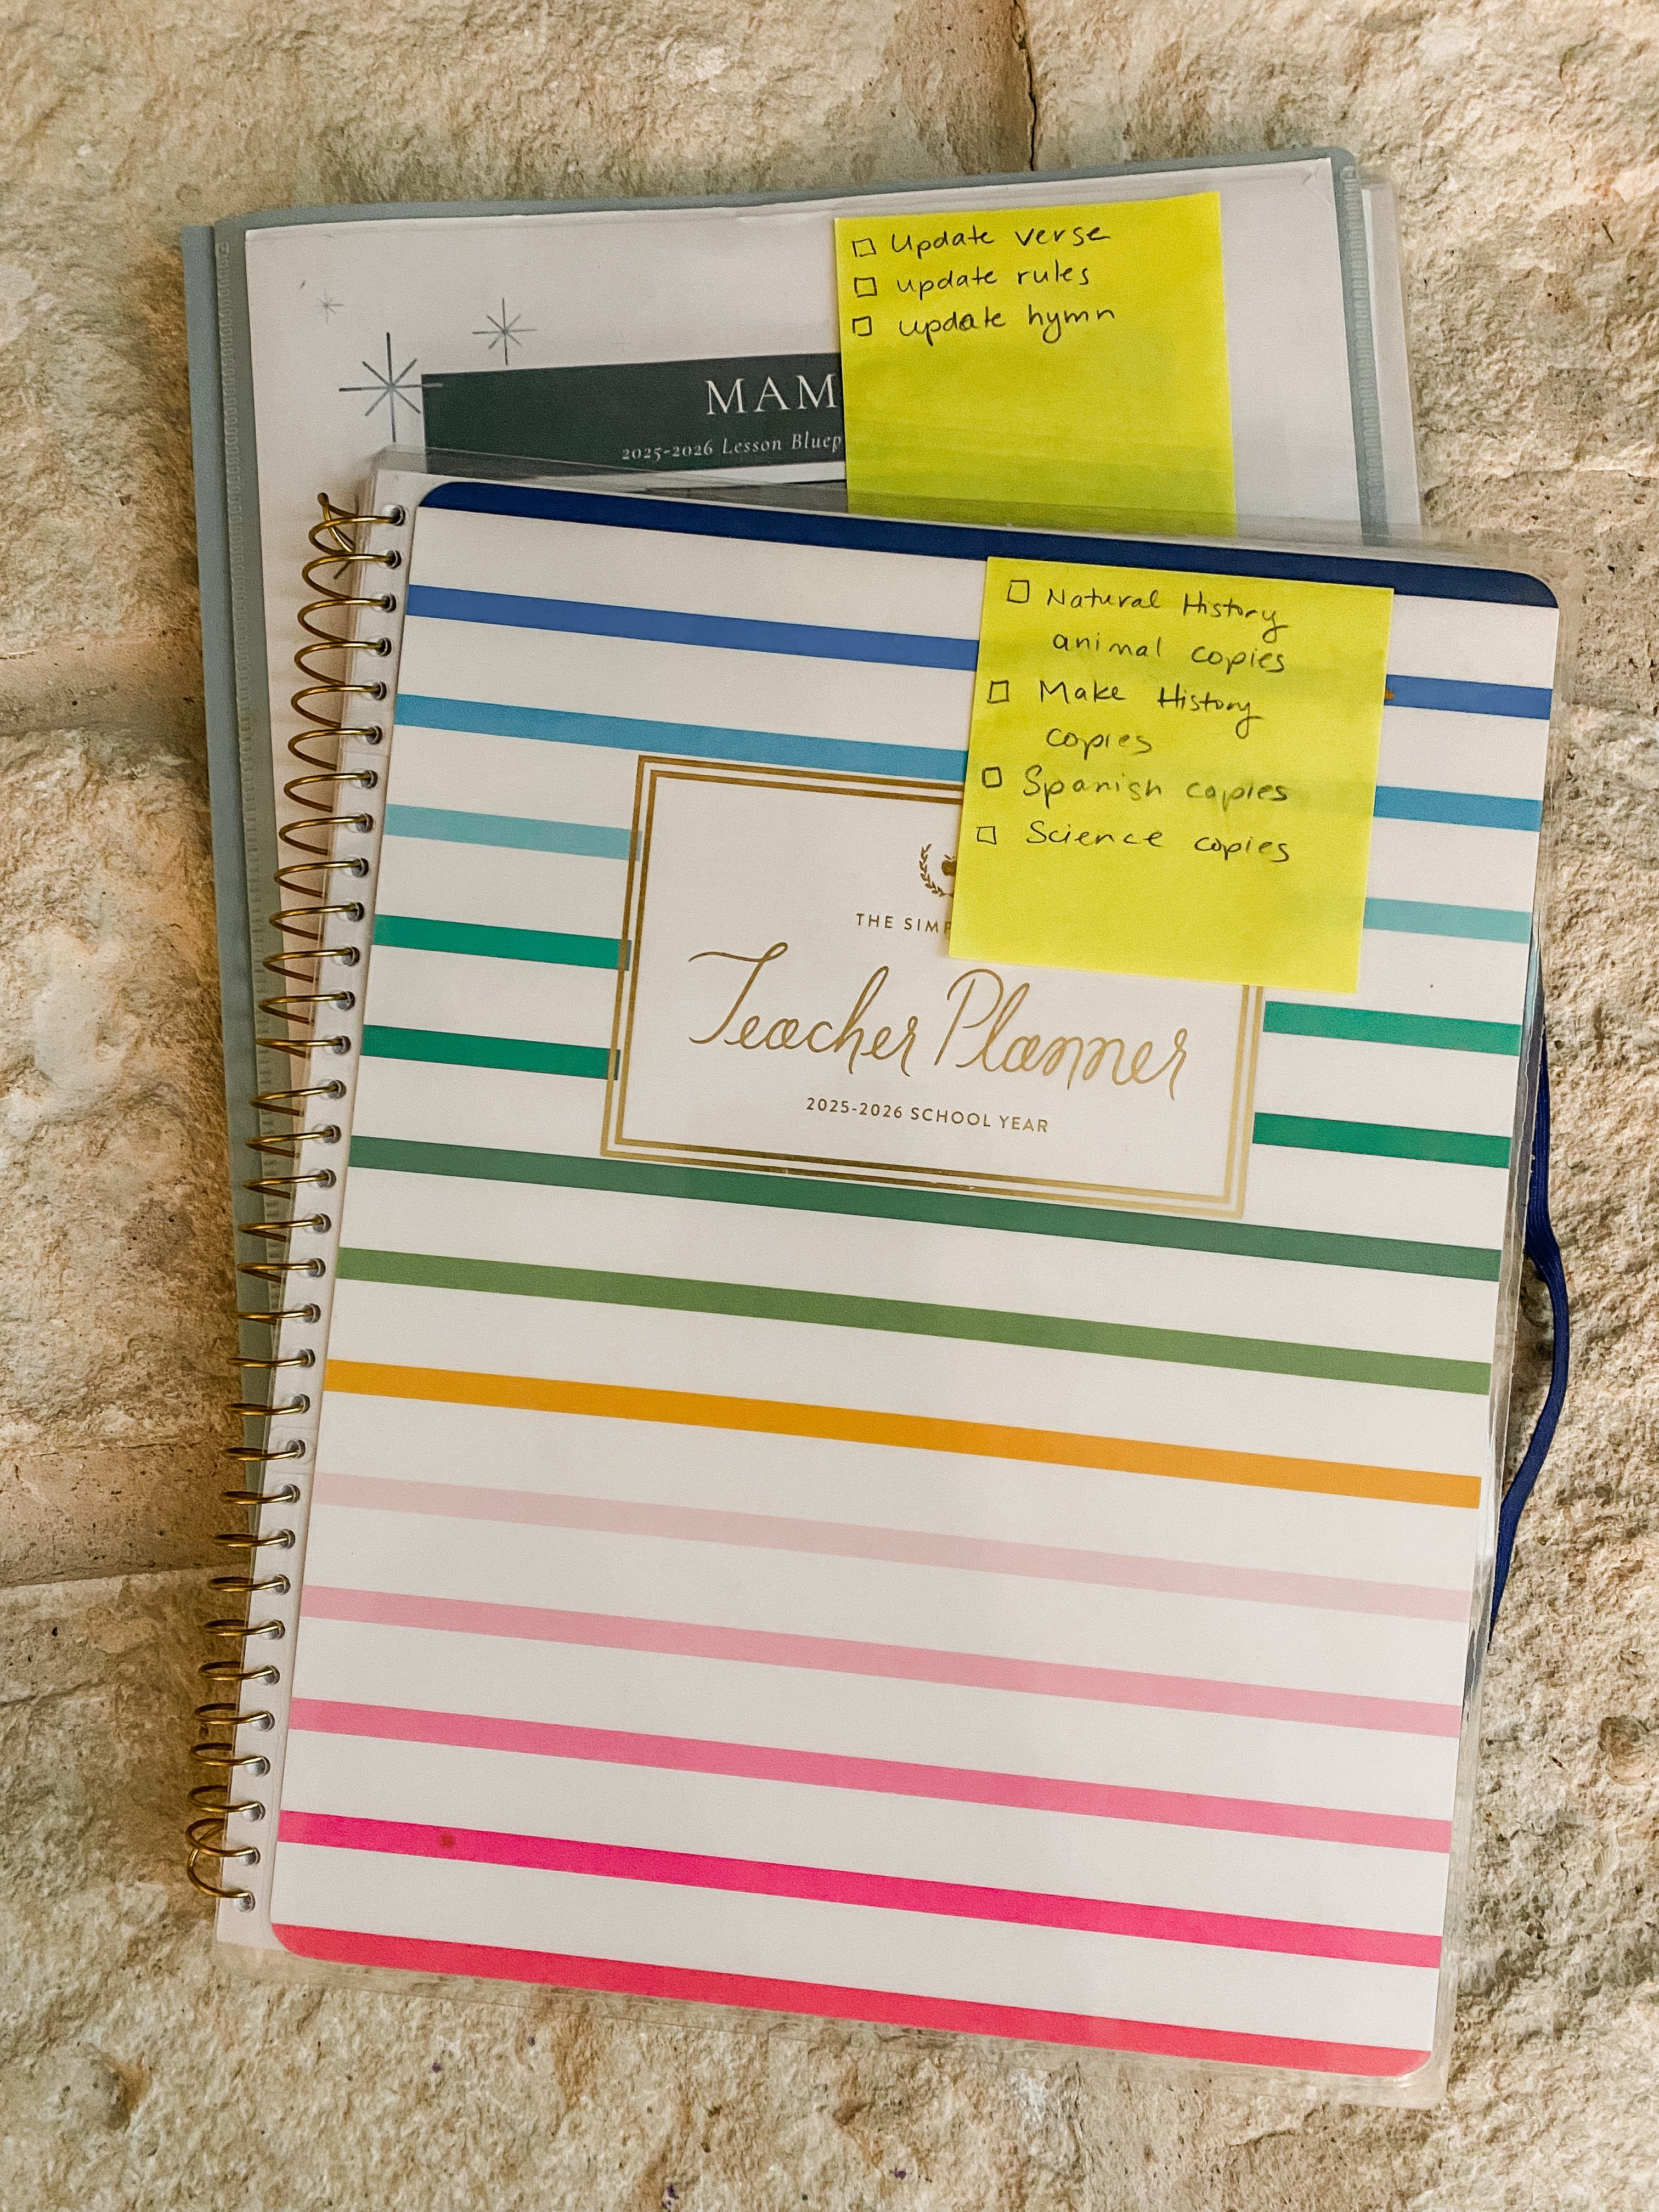 □ Update verse
□ update rules
□ update hymn
MAM
2025-2026 Lesson Bluep
□ Natural History
animal copies
□ Make History
copies
□ Spanish copies
□ Science copies
THE SIMP
Teacher Planner
2025-2026 SCHOOL YEAR